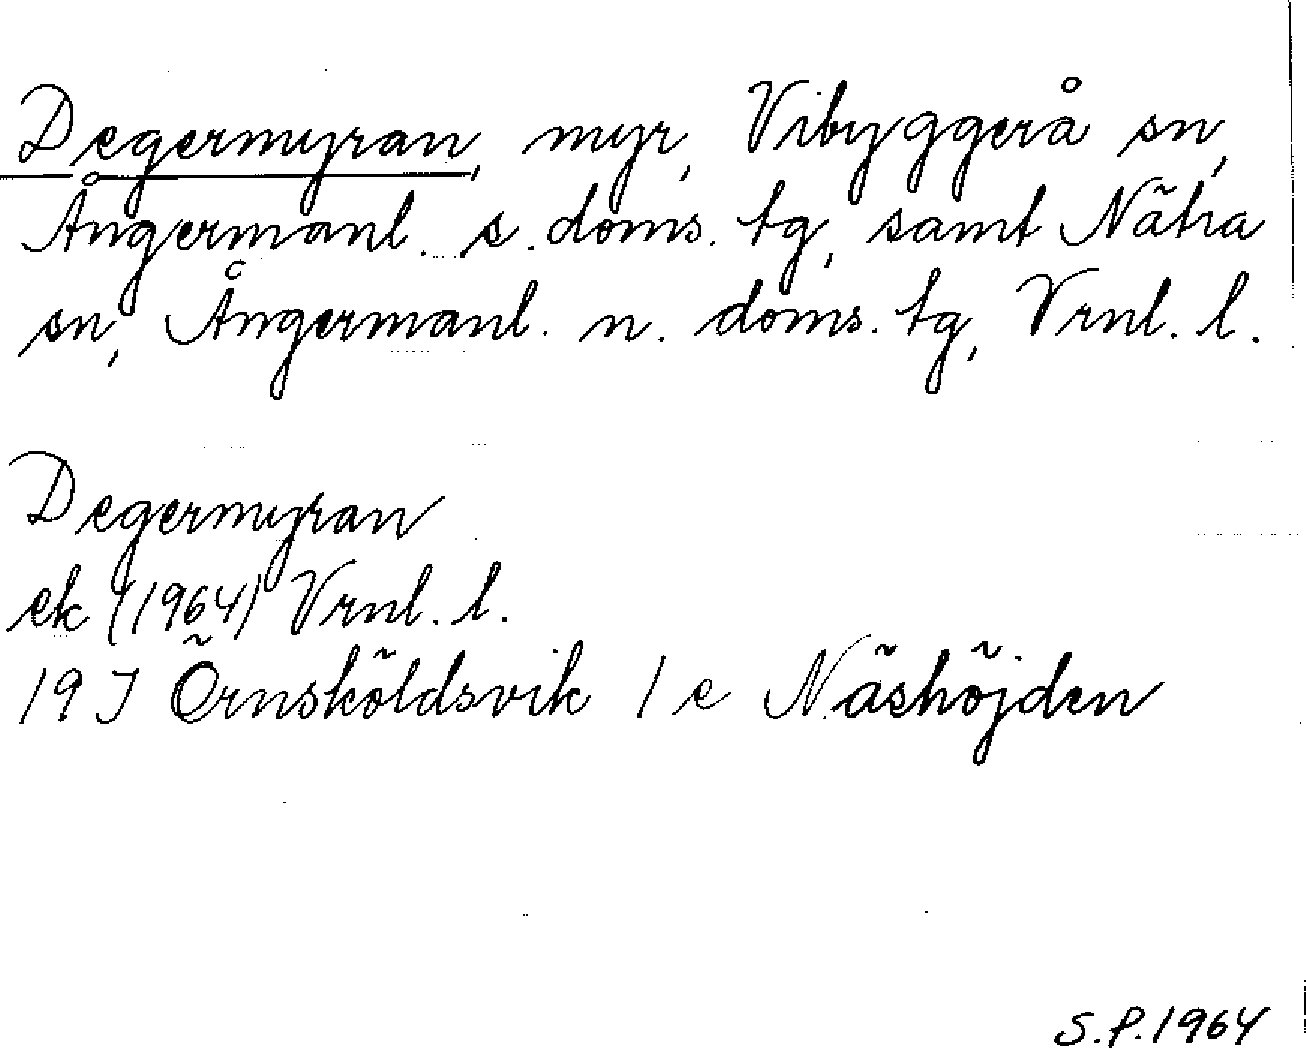 Degermyran, myr, Vibyggerå sn,
Ångermanl. s. doms. tg, samt Nätra
sn, Ångermanl. n. doms. tg, Vrnl. l.
Degermyran
ek (1964) Vrnl. l.
19 J Örnsköldsvik 1 e Näshöjden
S.P. 1964